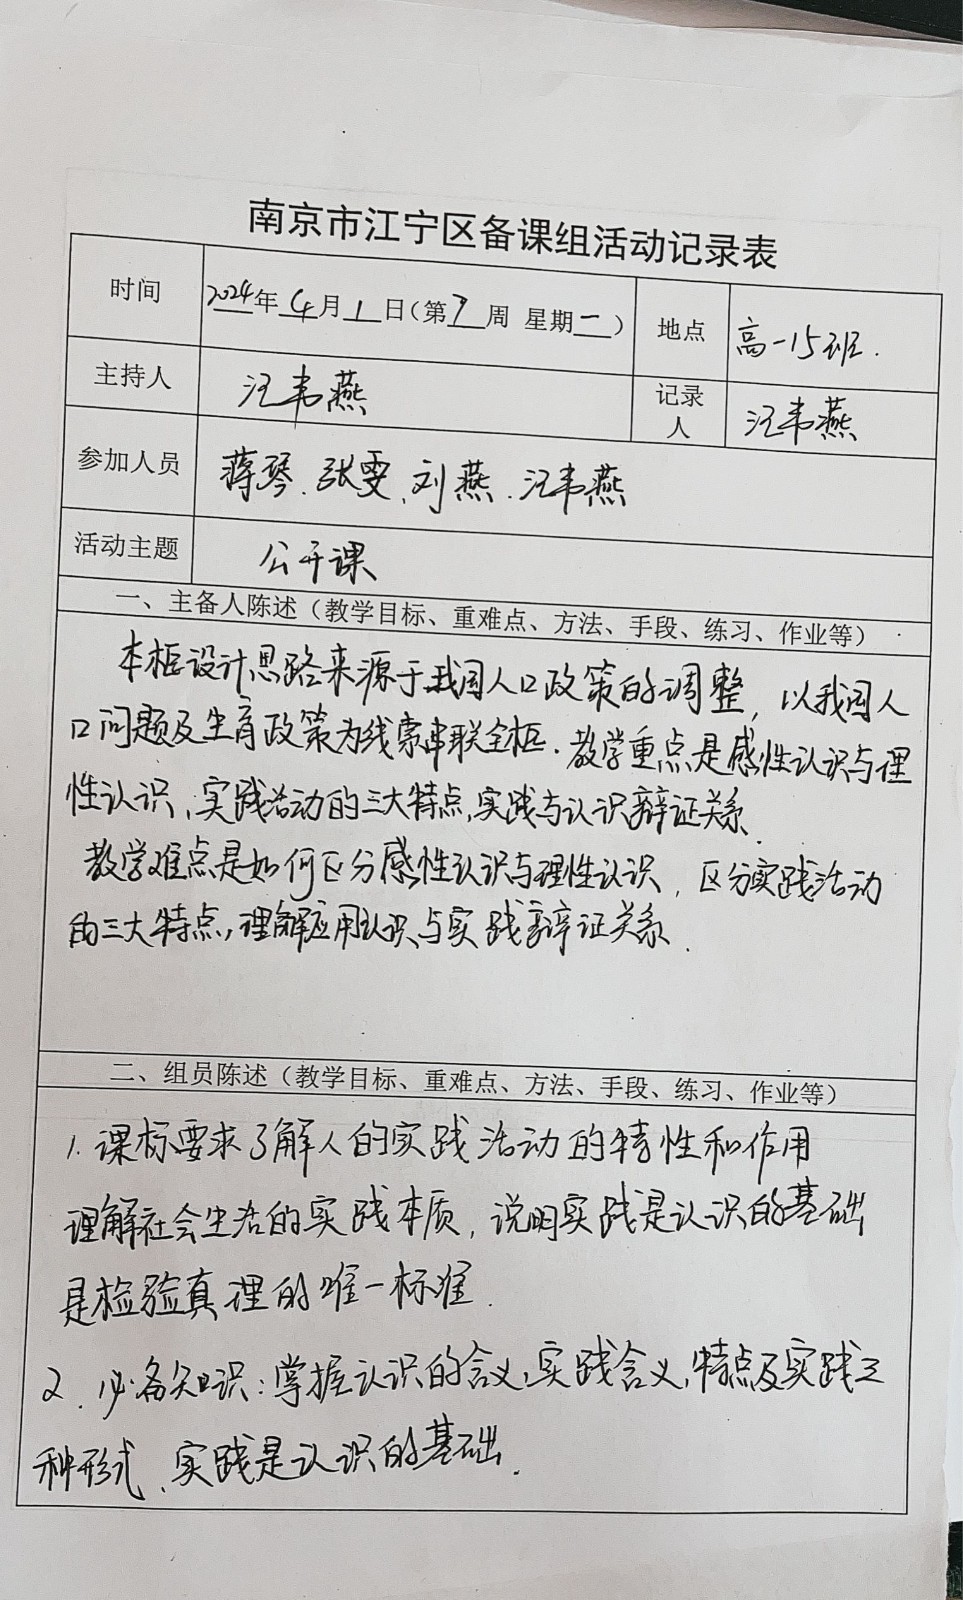 南京市江宁区备课组活动记录表
时间 2024年4月1日(第7周 星期一) 地点 高一15班.
主持人 汪韦燕 记录人 汪韦燕
参加人员 蒋琴、张雯、刘燕、汪韦燕
活动主题 公开课
一、主备人陈述（教学目标、重难点、方法、手段、练习、作业等）
本框设计思路来源于我国人口政策的调整，以我国人
口问题及生育政策为线索串联全框.教学重点是感性认识与理
性认识、实践活动的三大特点,实践与认识辩证关系.
教学难点是如何区分感性认识与理性认识，区分实践活动
的三大特点,理解应用认识与实践辩证关系.
二、组员陈述（教学目标、重难点、方法、手段、练习、作业等）
1.课标要求了解人的实践活动的特性和作用
理解社会生活的实践本质，说明实践是认识的基础
是检验真理的唯一标准.
2.必备知识:掌握认识的含义,实践含义,特点及实践三
种形式、实践是认识的基础.